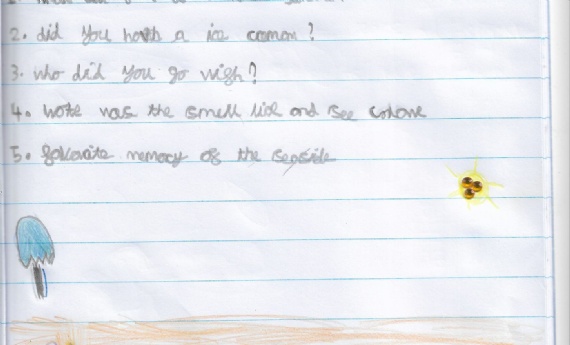 2. did you have a ice cream?
3. who did you go wigh?
4. wote was the smell like and see
5. favarite memory of the seaside